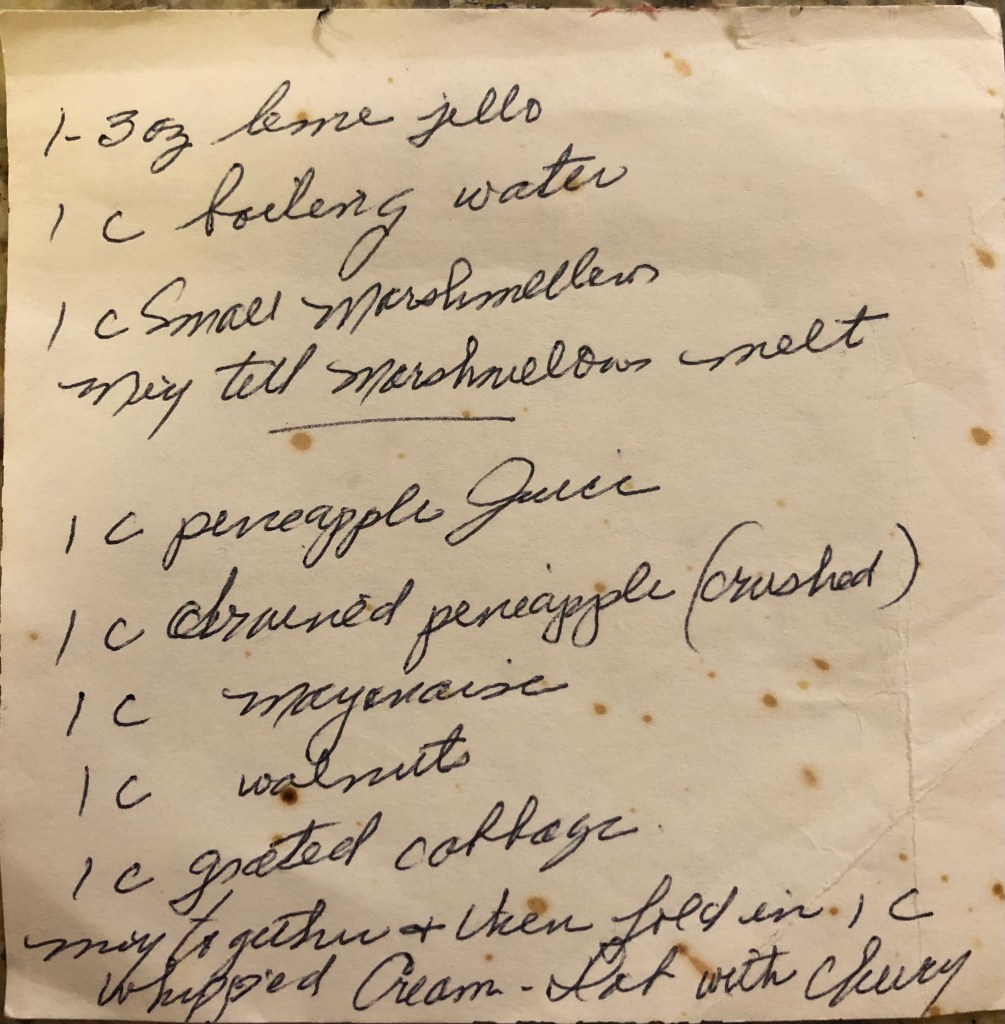 1-3 oz leme jello
1 c boileng water
1 c Small Marshmellows
Mix till Marshmelows melt
1 c peneapple Juice
1 c drained peneapple (crushed)
1 c mayonaise
1 c walnuts
1 c grated cabbage
mix together + then fold in 1 C
whipped Cream - with cherry